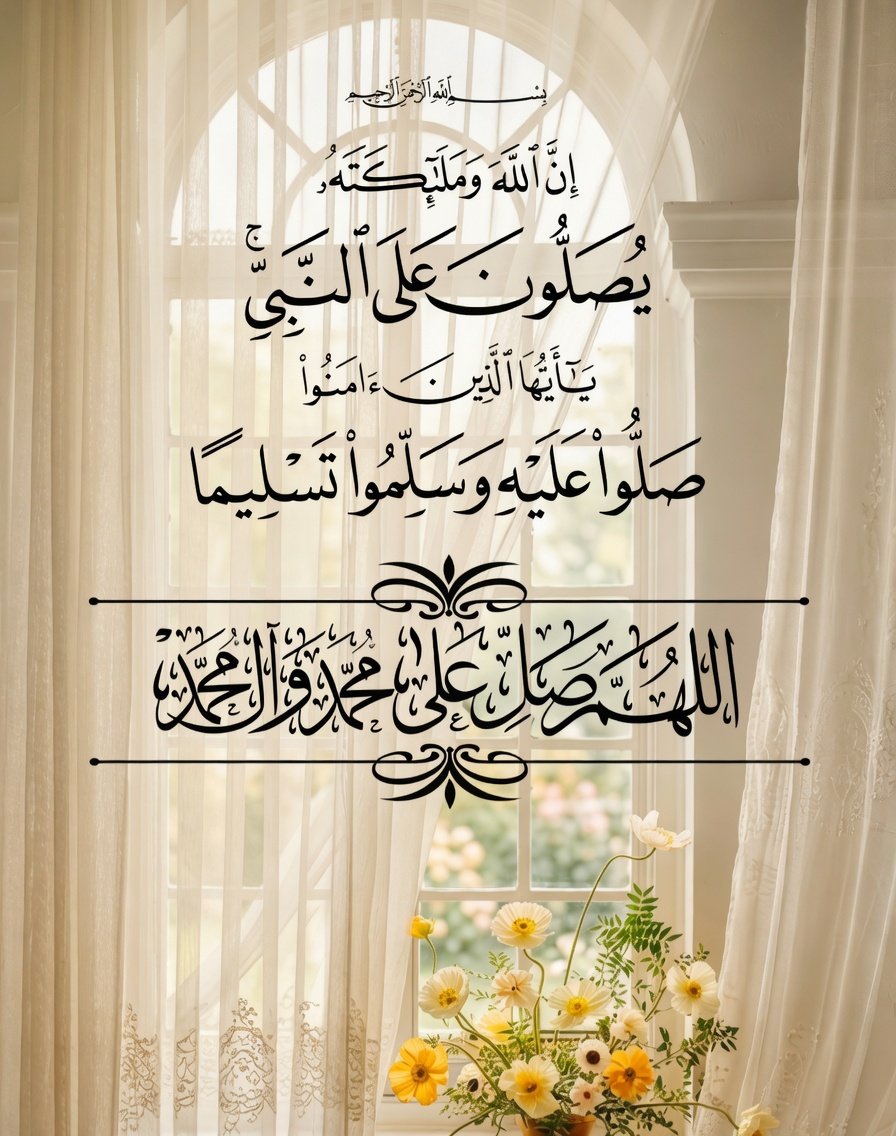 بِسْمِ ٱللَّهِ ٱلرَّحْمَٰنِ ٱلرَّحِيمِ
إِنَّ ٱللَّهَ وَمَلَٰٓئِكَتَهُۥ
يُصَلُّونَ عَلَى ٱلنَّبِيِّۚ
يَٰٓأَيُّهَا ٱلَّذِينَ ءَامَنُوا۟
صَلُّوا۟ عَلَيْهِ وَسَلِّمُوا۟ تَسْلِيمًا
اللهُمَّ صَلِّ عَلىٰ مُحَمَّدٍ وَآلِ مُحَمَّدٍ